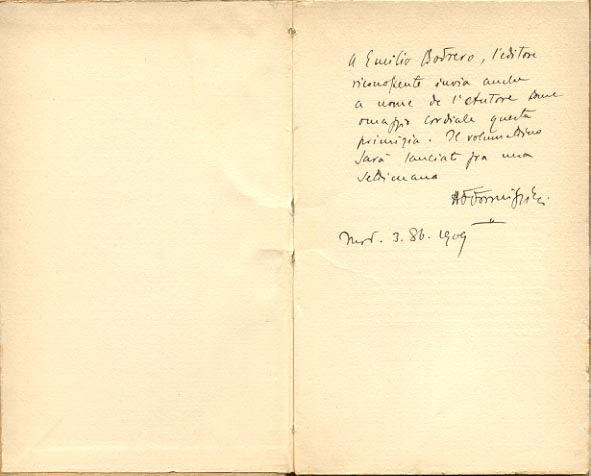 A Emilio Bodrero, l'editore
riconoscente invia anche
a nome de l'Autore come
omaggio cordiale questa
primizia. Il volumettino
sarà lanciato fra una
settimana
AFFormiggini
Mod. 3. 8b. 1909